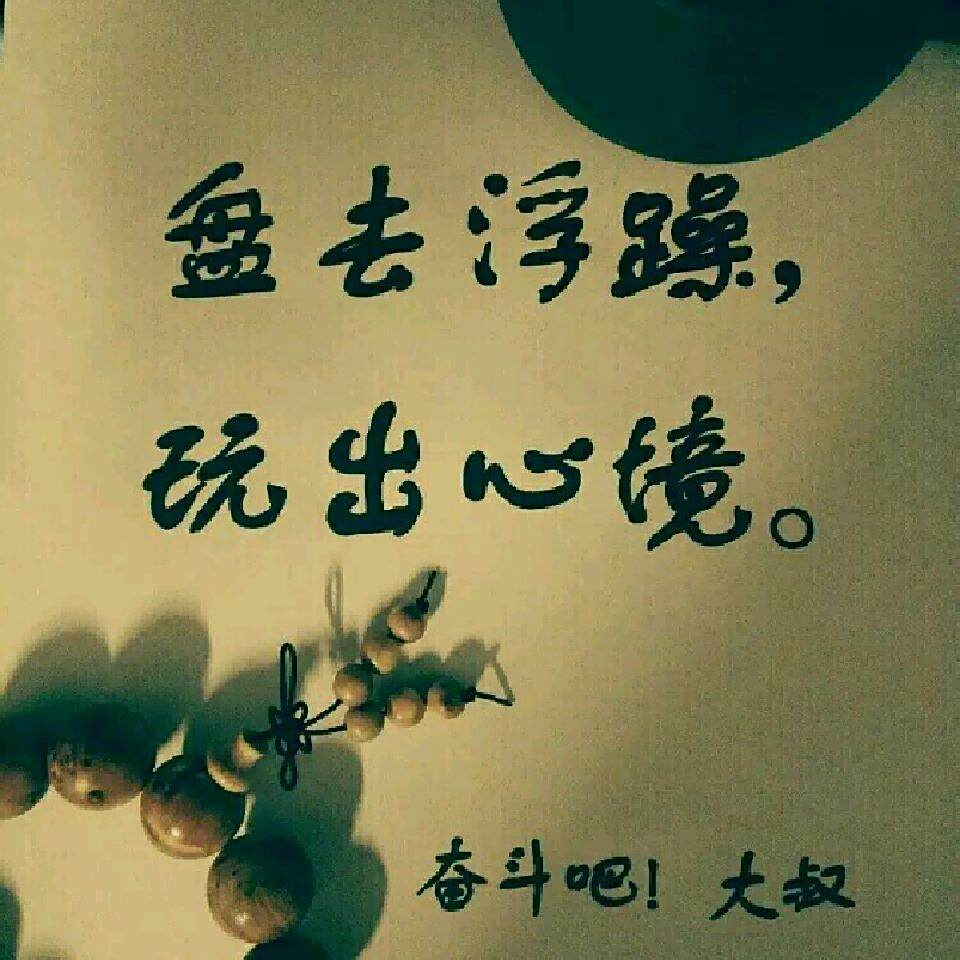 盘去浮躁，
玩出心境。
奋斗吧！大叔